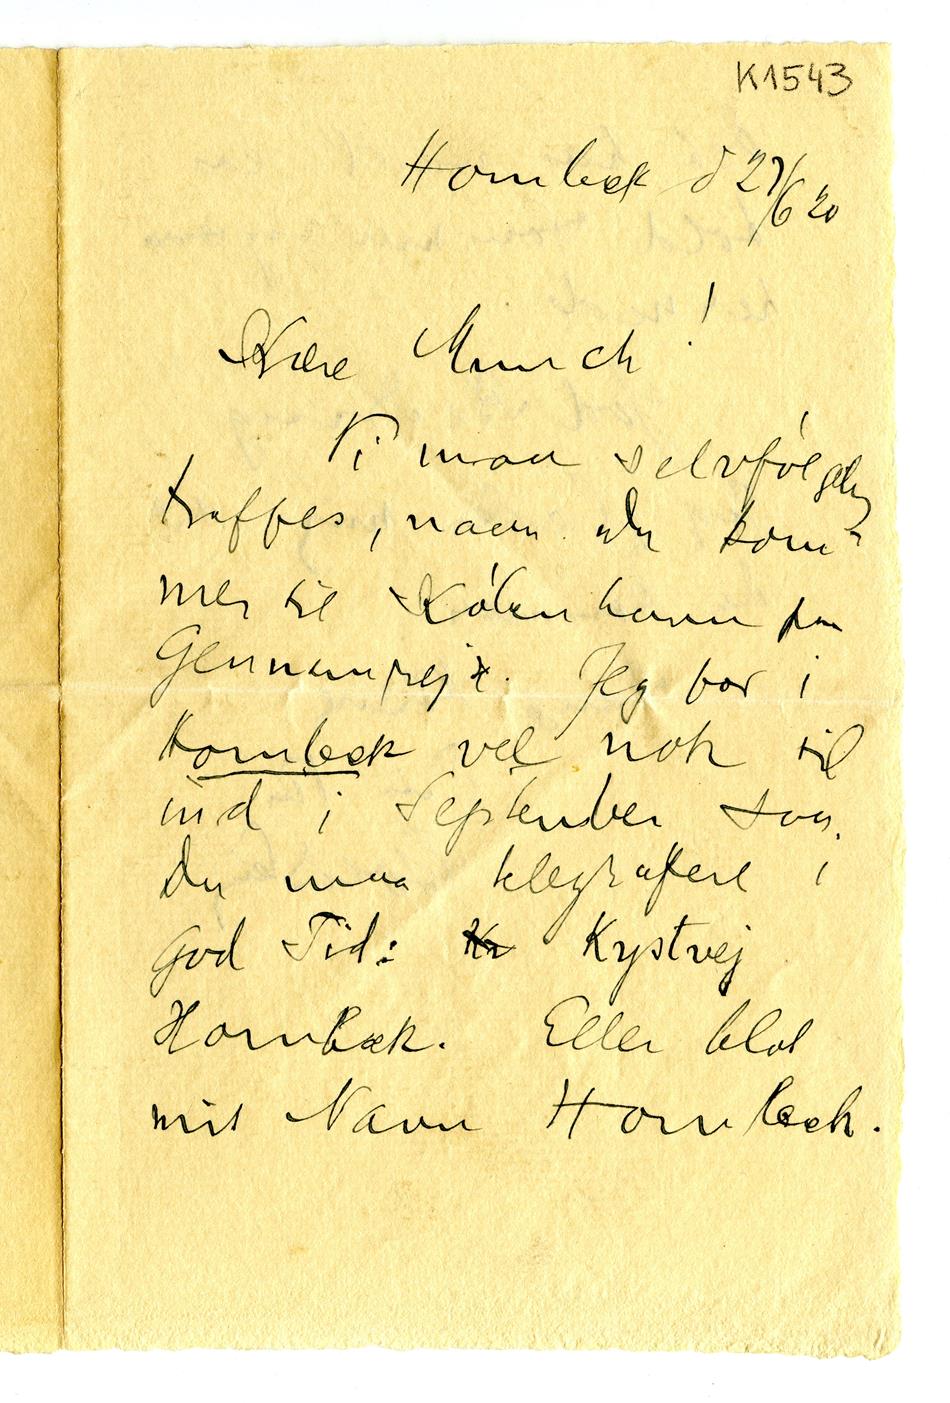 K1543
Hornbæk d 27/6 20
Kære Munch!
Vi maa selvfølgelig
træffes, naar Du kom-
mer til København paa
Gennemrejse. Jeg bor i
Hornbæk vel nok til
ind i September saa
Du maa telegrafere i
god Tid: Kr Kystvej
Hornbæk. Eller blot
mit Navn Hornbæk.